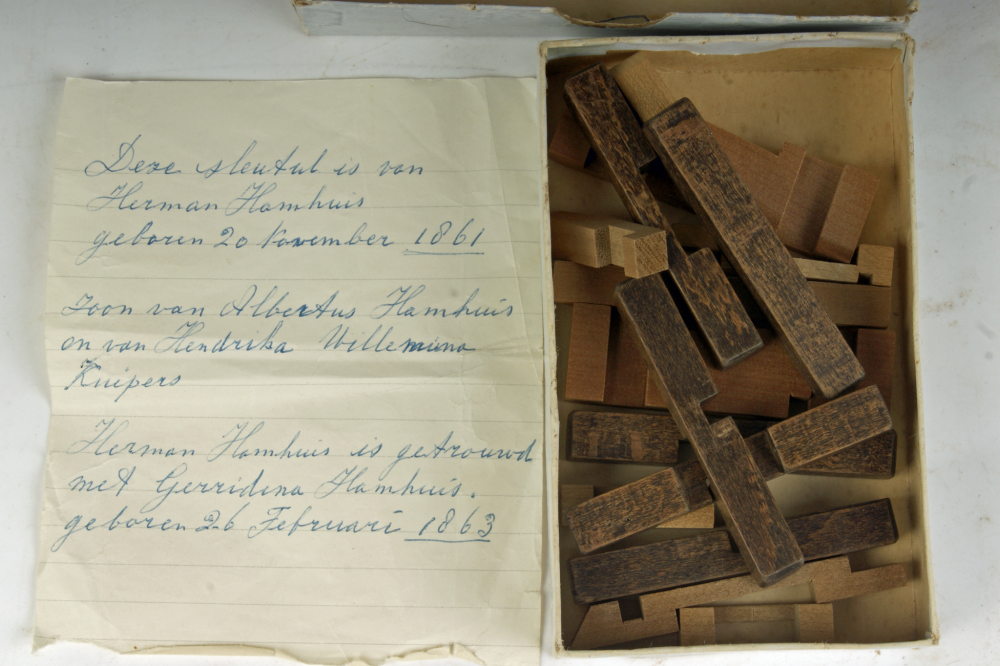 Deze sleutul is van
Herman Hamhuis
geboren 20 November 1861
zoon van Albertus Hamhuis
en van Hendrika Willemina
Kuipers
Herman Hamhuis is getrouwd
met Gerridina Hamhuis.
geboren 26 Februari 1863